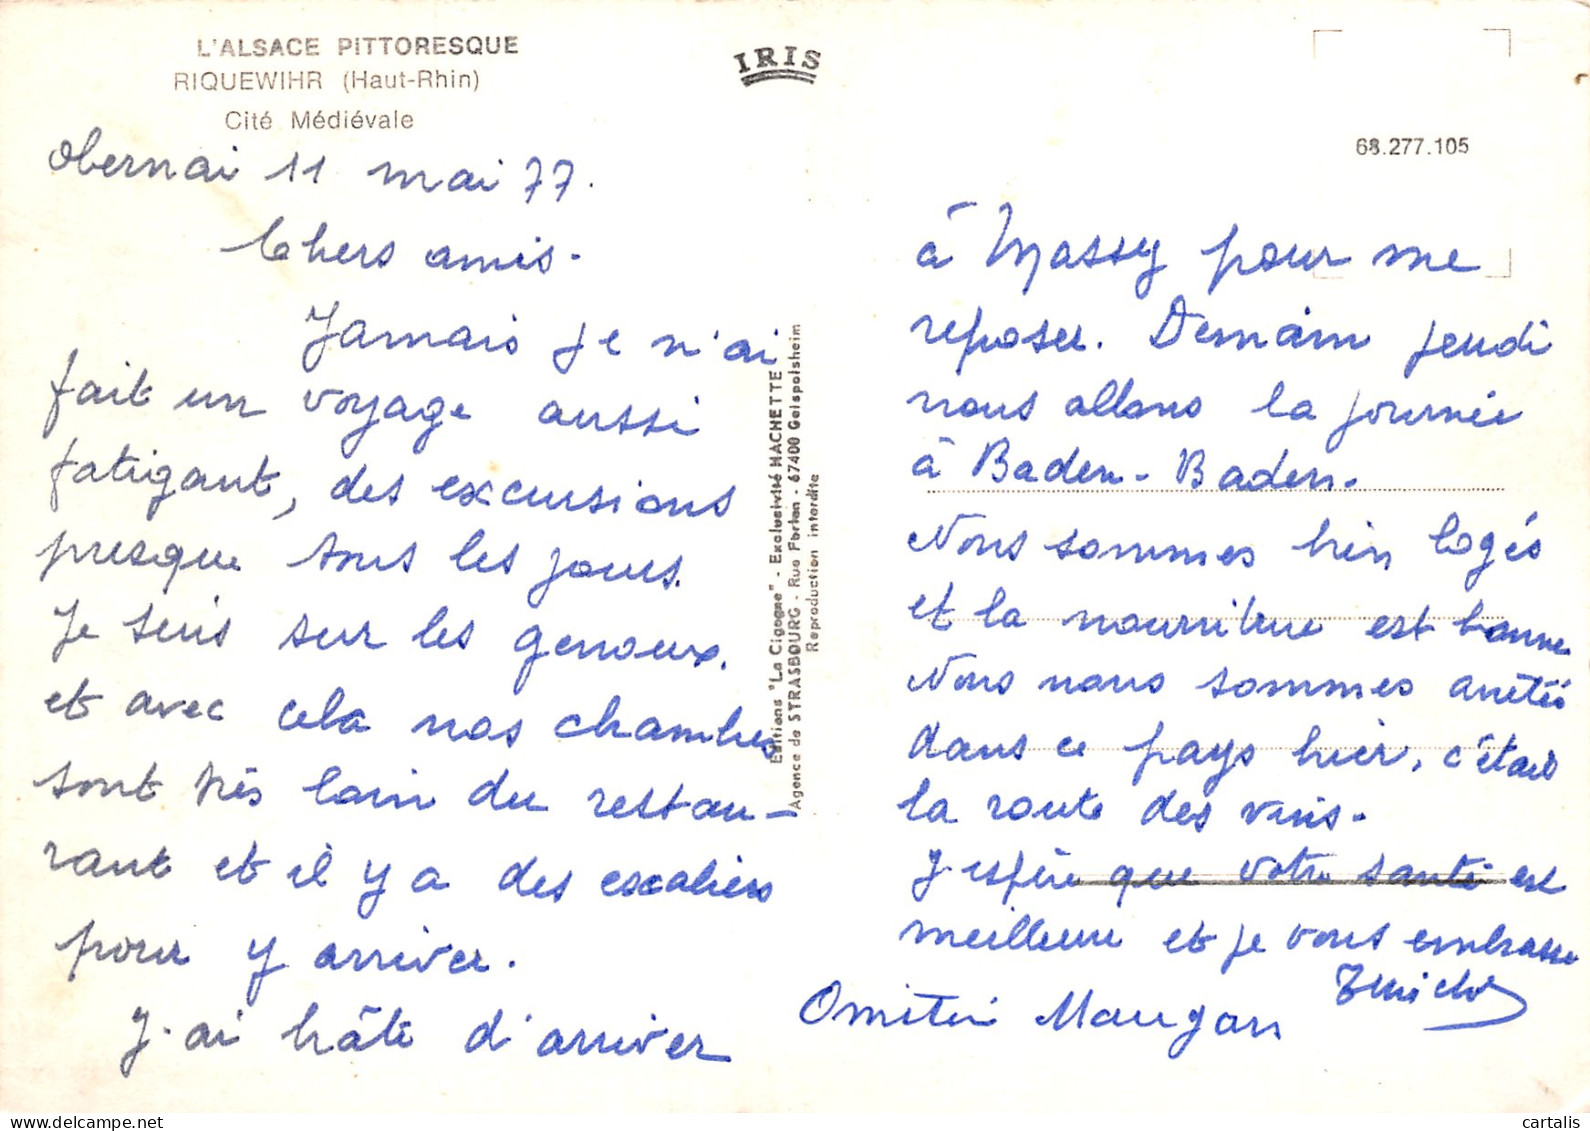 L'ALSACE PITTORESQUE
RIQUEWIHR (Haut-Rhin)
Cité Médiévale
IRIS
68.277.105
Obernai 11 mai 77.
Chers amis.
Jamais je n'ai
fait un voyage aussi
fatigant, des excursions
presque tous les jours.
Je suis sur les genoux.
et avec cela nos chambres
sont très loin du restau-
rant et il y a des escaliers
pour y arriver.
J'ai hâte d'arriver
Editions "La Cigogne" - Exclusivité HACHETTE
Agence de STRASBOURG - Rue Forlen - 67400 Geispolsheim
Reproduction interdite
à Massy pour me
reposer. Demain jeudi
nous allons la journée
à Baden-Baden.
Nous sommes bien logés
et la nourriture est bonne
Nous nous sommes arrêtés
dans ce pays hier, c'était
la route des vins.
J'espère que votre santé est
meilleure et je vous embrasse
cartalis